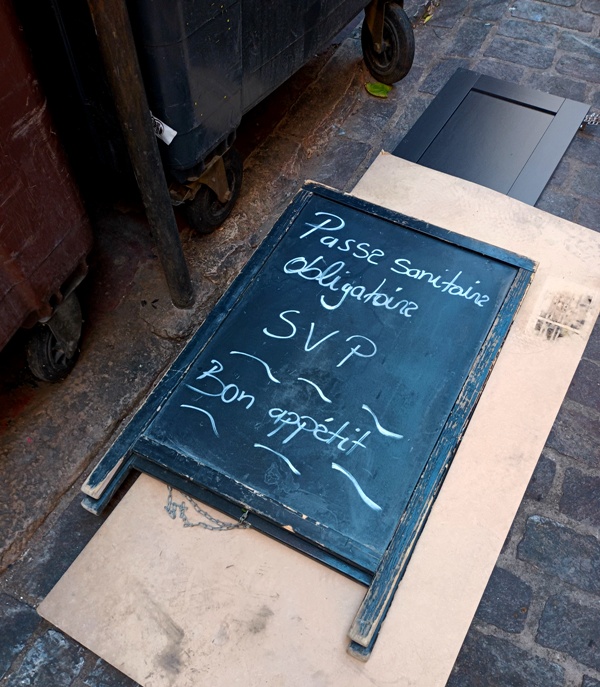 Passe sanitaire
obligatoire
SVP
Bon appétit